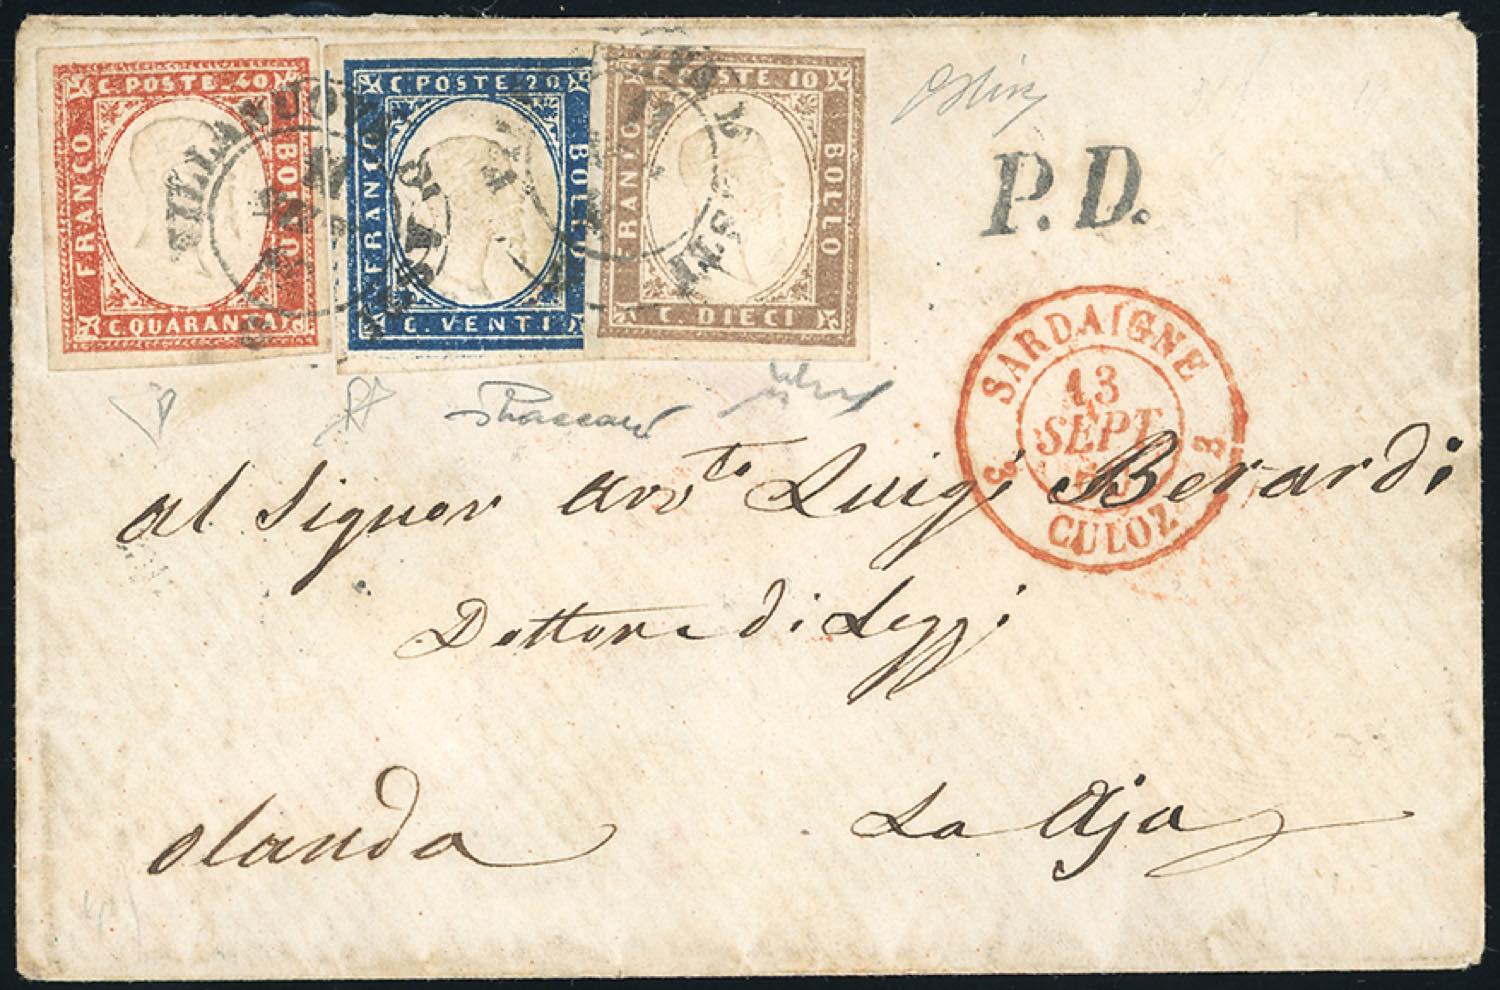 C. POSTE. 40
FRANCO
BOLLO
C. QUARANTA
C. POSTE 20
FRANCO
BOLLO
C. VENTI
C. POSTE 10
FRANCO
BOLLO
C. DIECI
P.D.
SARDAIGNE
13
SEPT
3 3
CULOZ
al Signor Avv.to Luigi Berardi
Dottore di Leggi
Olanda
La Aja